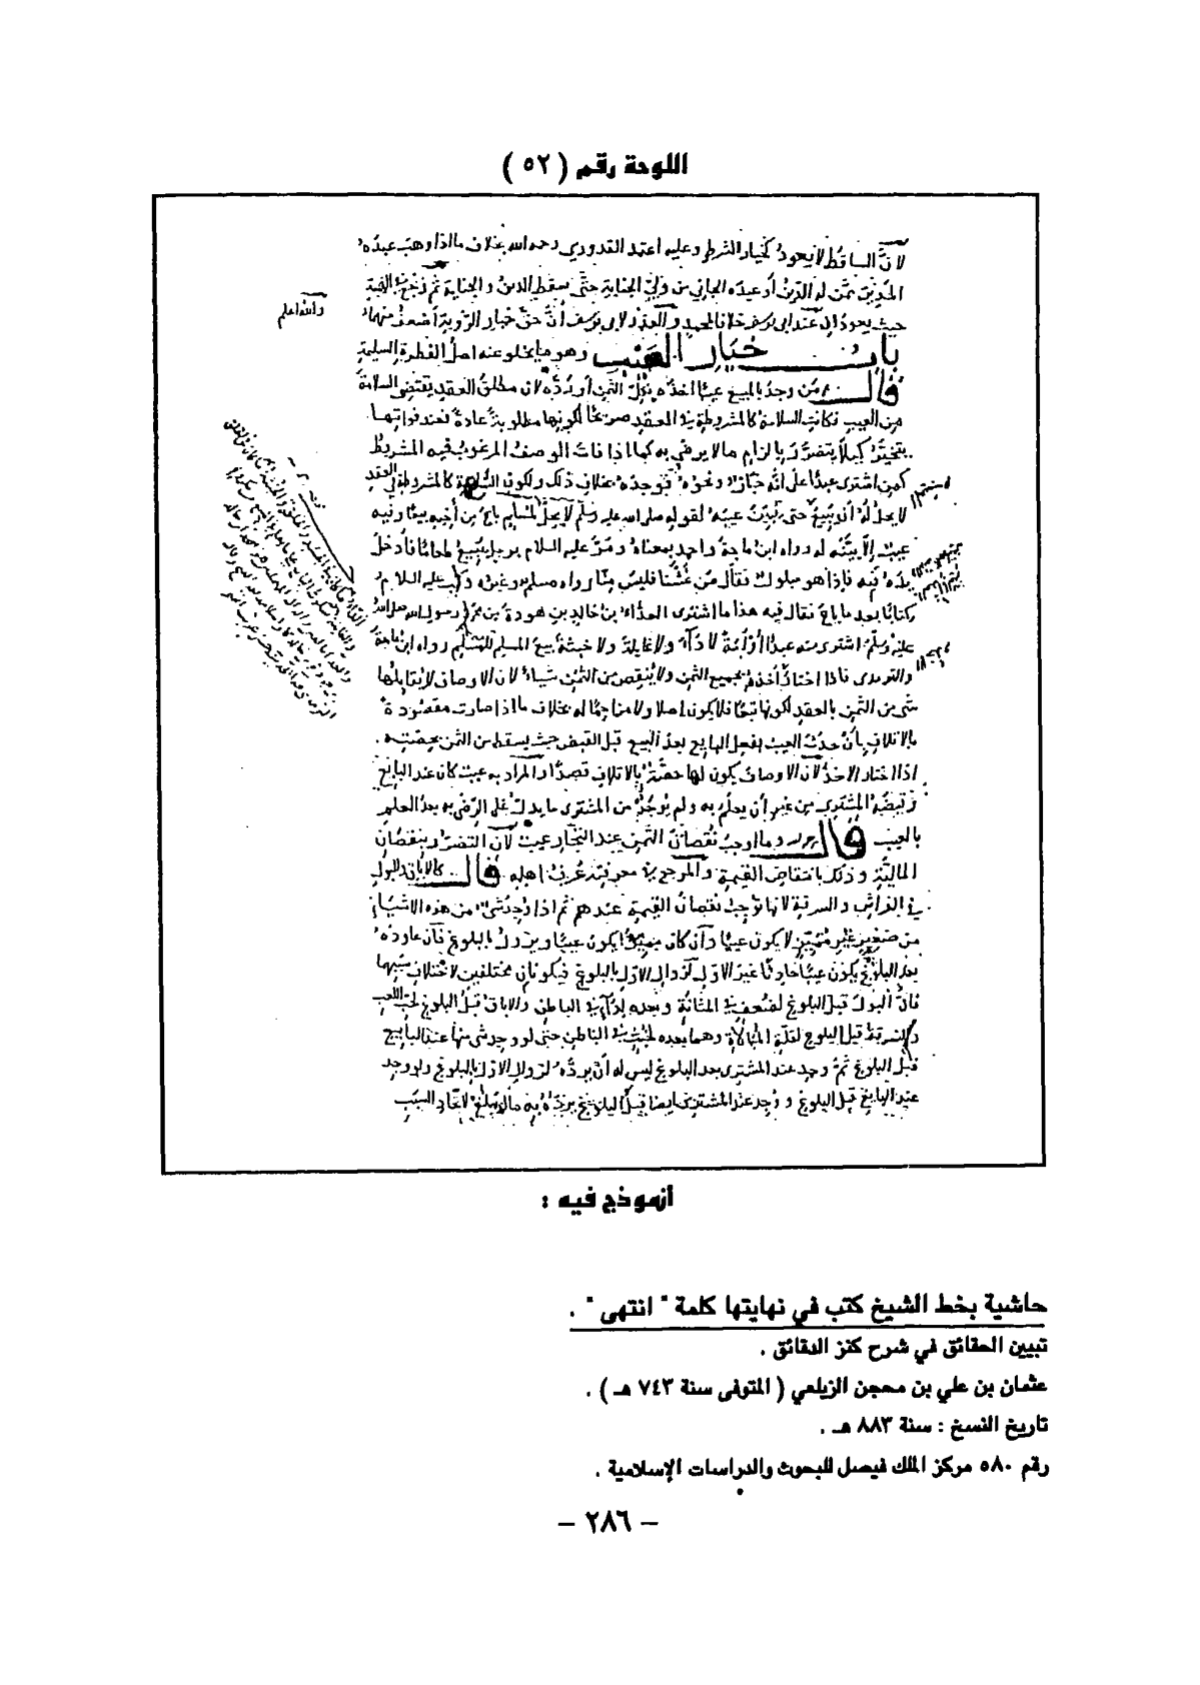 اللوحة رقم ( ٥٢ )
لأن الساقط لا يعود كخيار الشرط وعليه اعتمد القدوري رحمه الله بخلاف ما اذا وهب عبده
المديون ممن له الدين أو عبده الجاني من ولي الجناية حتى سقط الدين والجناية ثم رجع في الهبة
حيث يعود الدين عند ابي يوسف خلافا لمحمد والعذر لابي يوسف أن حق خيار الرؤية أضعف منهما
والله اعلم
باب خيار العيب وهو ما يخلو عنه اصل الفطرة السليمة
قال من وجد بالمبيع عيبا اخذه بكل الثمن أو رده لان مطلق العقد يقتضى السلامة
من العيب فكانت السلامة كالمشروطة في العقد صريحا لكونها مطلوبة عادة فعند فواتها
يتخير كيلا يتضرر بالزام ما لا يرضى به كما اذا فات الوصف المرغوب فيه المشروط
كمن اشترى عبدا على انه خباز ونحوه فوجده بخلاف ذلك ولكون السلامة كالمشروطة في العقد
لا يحل له أن يبيع حتى يبين عيبه لقوله صلى الله عليه وسلم لا يحل لمسلم باع من أخيه بيعا وفيه
عيب إلا بينه له رواه ابن ماجة واحمد بمعناه ومر عليه السلام برجل يبيع طعاما فأدخل
يده فيه فإذا هو مبلول فقال من غشنا فليس منا رواه مسلم وغيره وكتب عليه السلام
كتابا بعد ما باع فقال فيه هذا ما اشترى العداء بن خالد بن هوذة من محمد رسول الله صلى الله
عليه وسلم اشترى منه عبدا أو أمة لا داء ولا غايلة ولا خبثة بيع المسلم للمسلم رواه ابن ماجة
والترمذى فاذا اختار أخذه بجميع الثمن ولا ينقص من الثمن شيأ لان الاوصاف لا يقابلها
شى من الثمن بالعقد لكونها تبعا فلا يكون اصلا ولا مزاحما له بخلاف ما اذا صارت مقصودة
بالاتلاف بأن حدث العيب بفعل البايع بعد البيع قبل القبض حيث يسقط من الثمن بحصته
اذا اختار الاخذ لان الاوصاف يكون لها حصة بالاتلاف قصدا والمراد به عيب كان عند البايع
وقبضه المشترى من غير أن يعلم به ولم يوجد من المشترى ما يدل على الرضى به بعد العلم
بالعيب قال وما اوجب نقصان الثمن عند التجار عيب لأن التضرر بنقصان
المالية وذلك بانتقاص القيمة والمرجع في معرفته عرف اهله قال كالاباق والبول
في الفراش والسرقة لانها توجب نقصان القيمة عندهم ثم اذا وجد شى من هذه الاشياء
من صغير غير مميز لا يكون عيبا وان كان مميزا يكون عيبا ويزول بالبلوغ فان عاوده
بعد البلوغ يكون عيبا حادثا غير الاول لزوال الاول بالبلوغ فيكونان مختلفين لاختلاف سببهما
فان البول قبل البلوغ لضعف في المثانة وبعده لداء في الباطن والاباق قبل البلوغ لحب اللعب
والسرقة قبل البلوغ لقلة المبالاة وهما بعده لخبث في الباطن حتى لو وجد شى منها عند البايع
قبل البلوغ ثم وجد عند المشترى بعد البلوغ ليس له أن يرده لزوال الاول بالبلوغ ولو وجد
عند البايع قبل البلوغ ووجد عند المشترى ايضا قبل البلوغ يرده به ما لم يبلغ لاتحاد السبب
أنموذج فيه :
حاشية بخط الشيخ كتب في نهايتها كلمة " انتهى " .
تبيين الحقائق في شرح كنز الدقائق .
عثمان بن علي بن محجن الزيلعي ( المتوفى سنة ٧٤٣ هـ ) .
تاريخ النسخ : سنة ٨٨٣ هـ .
رقم ٥٨٠ مركز الملك فيصل للبحوث والدراسات الإسلامية .
– ٢٨٦ –